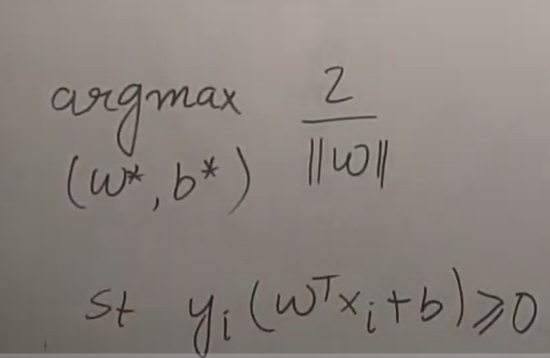 argmax 2/||w||
(w*, b*)
st yᵢ(wᵀxᵢ+b)⩾0